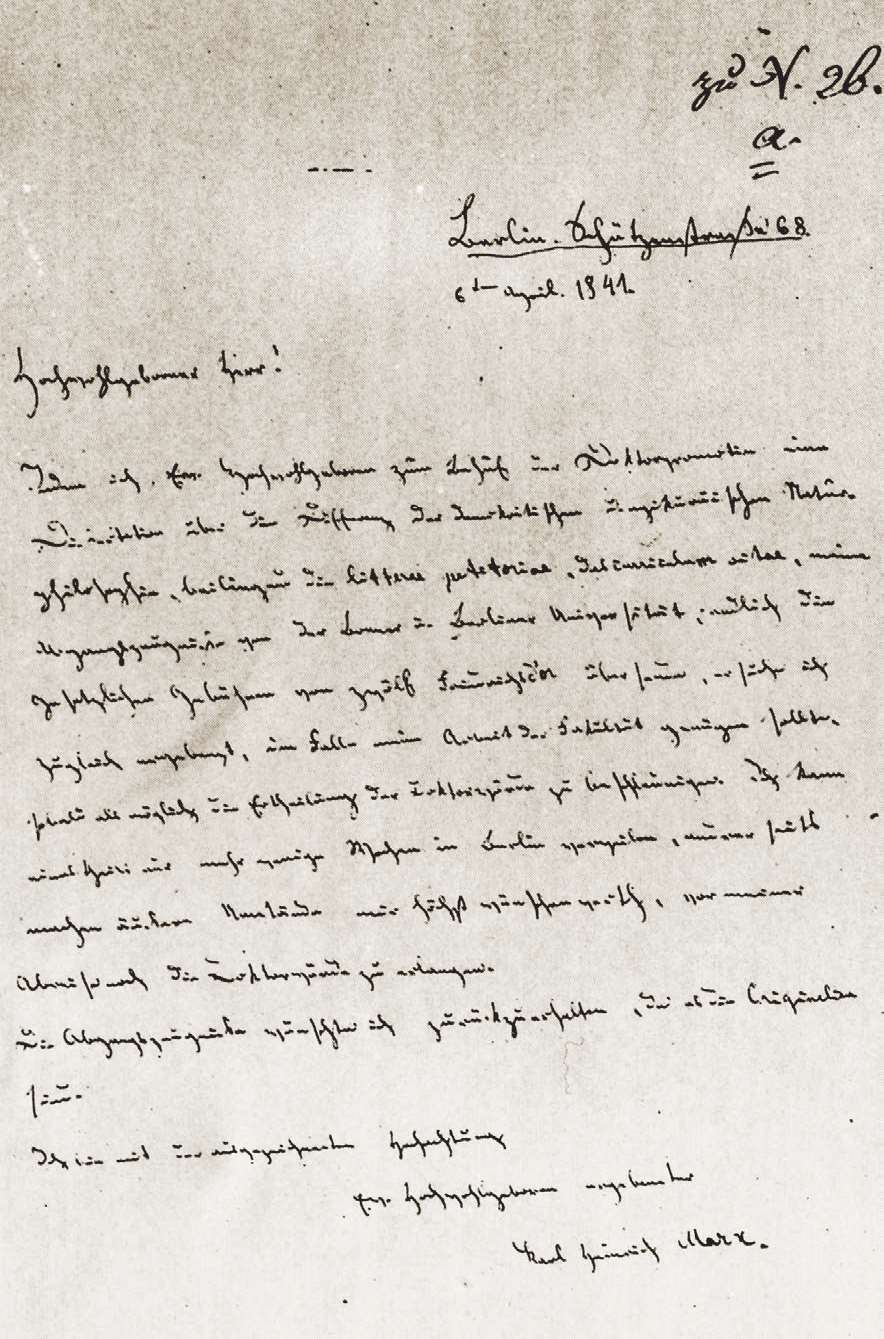 zu N. 2b.
a.
Berlin. Schützenstrasse 68.
6te April. 1841.
Hochwohlgeborener Herr!
Indem ich Ew. Hochwohlgeboren zum Behuf der Doktorpromotion eine
Dissertation über die Differenz der demokritischen u. epikureischen Natur-
philosophie, beiliegend die litterae petitoriae, das curriculum vitae, meine
Abgangszeugnisse von der Bonner u. Berliner Universität, endlich die
gesetzlichen Gebühren von zwölf Friedrichsd'or übersende, ersuche ich
zugleich ergebenst, im Falle meine Arbeit der Fakultät genügen sollte,
sobald als möglich die Ertheilung der Doktorwürde zu beschleunigen. Ich kann
einestheils nur mehr wenige Wochen in Berlin verweilen, andrer seits
machen äussere Umstände mir höchst wünschenswerth, vor meiner
Abreise noch die Doktorwürde zu erlangen.
Die Abgangszeugnisse wünschte ich zurückzuerhalten, da es die Originalia
sind.
Ich bin mit der ausgezeichneten Hochachtung
Ew. Hochwohlgeboren ergebenster
Karl Heinrich Marx.